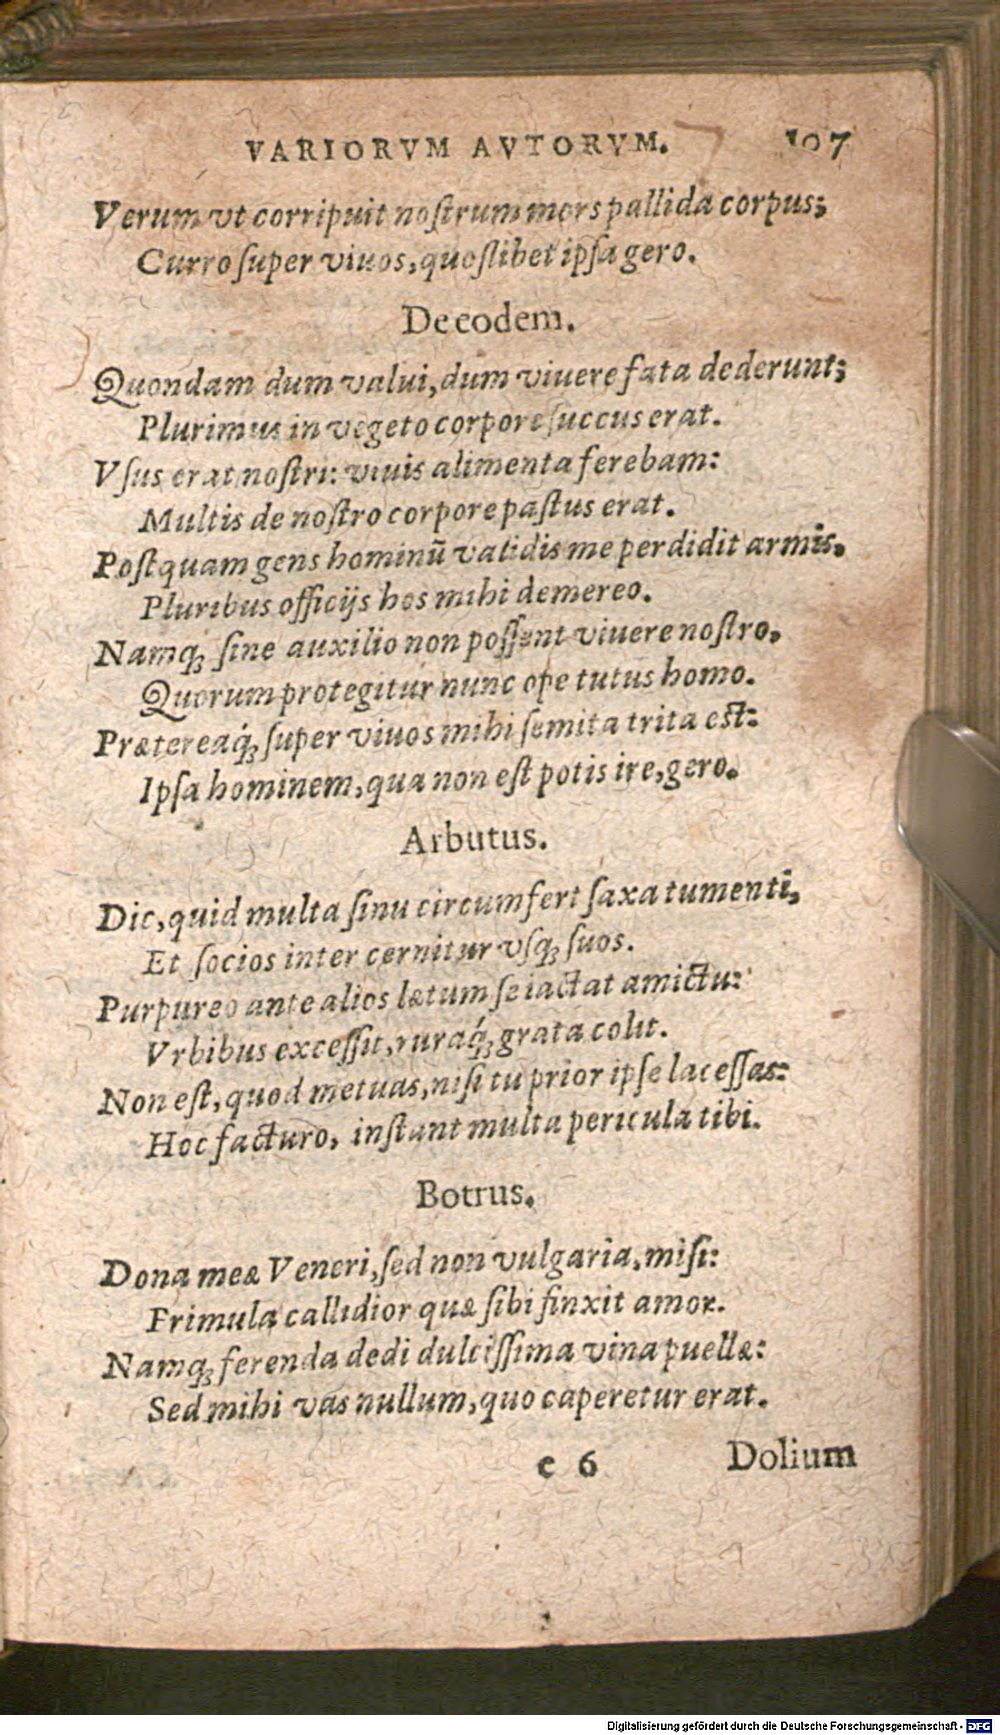 VARIORVM AVTORVM. 107
Verum vt corripuit noſtrum mors pallida corpus;
Curro ſuper viuos, quoſlibet ipſa gero.
De eodem.
Quondam dum valui, dum viuere fata dederunt;
Plurimus in vegeto corpore ſuccus erat.
Vſus erat noſtri: viuis alimenta ferebam:
Multis de noſtro corpore paſtus erat.
Poſtquam gens hominũ validis me perdidit armis.
Pluribus officijs hos mihi demereo.
Namq; ſine auxilio non poſſent viuere noſtro.
Quorum protegitur nunc ope tutus homo.
Prætereaq́; ſuper viuos mihi ſemita trita eſt:
Ipſa hominem, qua non eſt potis ire, gero.
Arbutus.
Dic, quid multa ſinu circumfert ſaxa tumenti,
Et ſocios inter cernitur vſq; ſuos.
Purpureo ante alios lætum ſe iactat amictu:
Vrbibus exceſſit, ruraq́; grata colit.
Non eſt, quod metuas, niſi tu prior ipſe laceſſas:
Hoc facturo, inſtant multa pericula tibi.
Botrus.
Dona meæ Veneri, ſed non vulgaria, miſi:
Primula callidior quæ ſibi finxit amor.
Namq; ferenda dedi dulciſſima vina puellæ:
Sed mihi vas nullum, quo caperetur erat.
e 6 Dolium
Digitalisierung gefördert durch die Deutsche Forschungsgemeinschaft - DFG